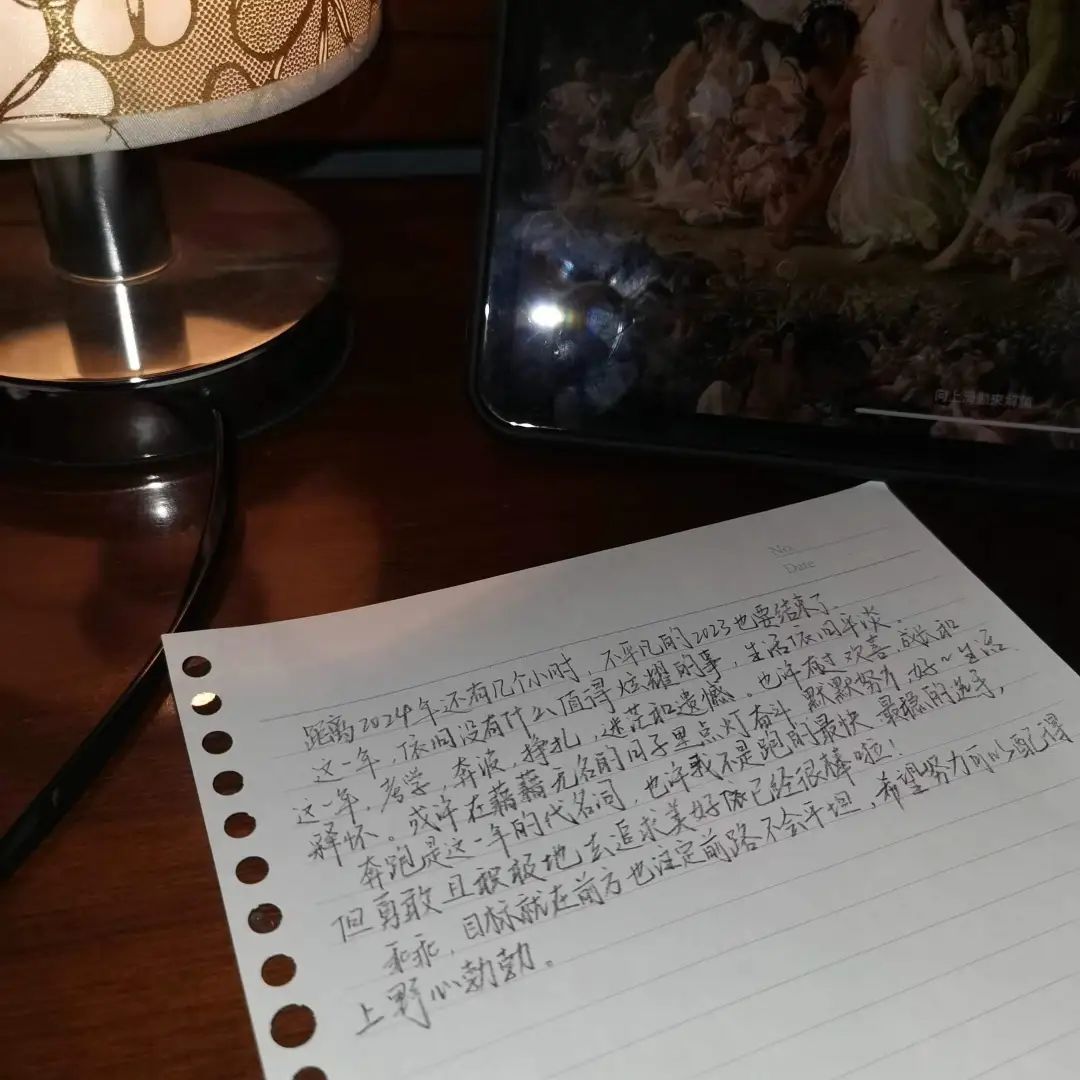 向上滑動來解鎖
No.
Date
距离2024年还有几个小时，不平凡的2023也要结束了.
这一年，依旧没有什么值得炫耀的事，生活依旧平淡.
这一年，考学，奔波，挣扎，迷茫和遗憾。也许有过欢喜，成长和
释怀。或许在藉藉无名的日子里点灯奋斗，默默努力，好~生活.
奔跑是这一年的代名词，也许我不是跑的最快，最稳的选手，
但勇敢且积极地去追求美好你已经很棒啦！
乖乖，目标就在前方也注定前路不会平坦，希望努力可以配得
上野心勃勃。